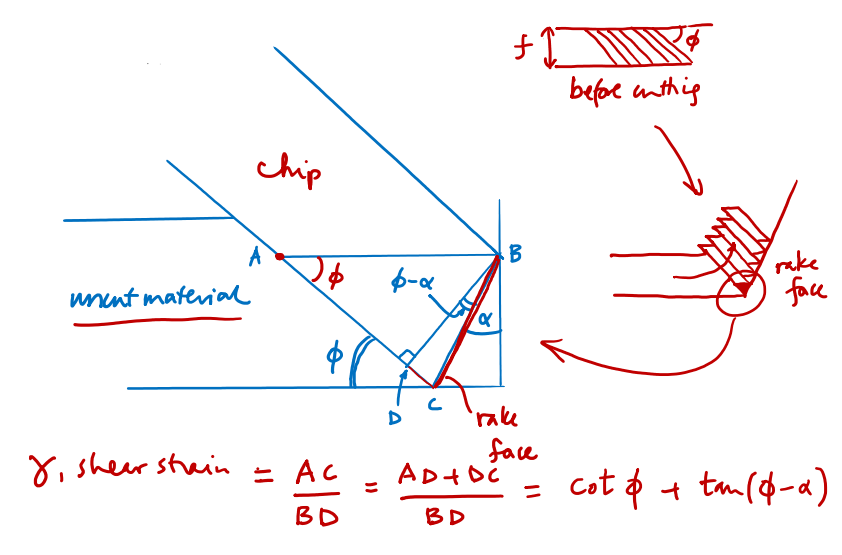 f
ϕ
before cutting
chip
A
ϕ
B
ϕ-α
α
rake
face
uncut material
ϕ
D
C
rake
face
γ, shear strain = AC/BD = AD+DC/BD = cot ϕ + tan(ϕ-α)